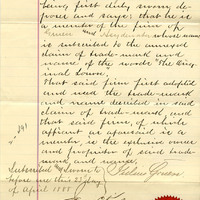 being first duly sworn de-
poses and says: that he is
a member of the firm of
and whose name
is subscribed to the annexed
claim of trade-mark and
name of the words "The Orig-
inal Lowe."
That said firm first adopted
and used the trade-mark
and name described in said
claim of trade-mark, and
that said firm, of whom
affiant as aforesaid is a
member, is the exclusive owner
and proprietor of said trade-
mark and name.
Subscribed & sworn to
before me this day
of April 1885